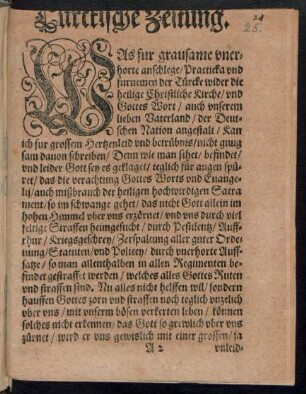 Türckische Zeitung.
25.
WAs fur grausame vner-
horte anschlege/ Practicka vnd
furnemen der Türcke wider die
heilige Christliche Kirche/ vnd
Gottes Wort/ auch vnserem
lieben Vaterland/ der Deut-
schen Nation angestalt/ Kan
ich fur grossem Hertzenleid vnd betrübnis/ nicht gnug
sam dauon schreiben/ Denn wie man sihet/ befindet/
vnd leider Gott sey es geklaget/ teglich für augen spü-
ret/ das die verachtung Gottes Worts vnd Euange-
lij/ auch misbrauch der heiligen hochwirdigen Sacra
ment/ so im schwange gehet/ das nicht Gott allein im
hohen Himmel vber vns erzörnet/ vnd vns durch viel
feltige Straffen heimgesucht/ durch Pestilentz/ Auff-
rhur/ Kriegsgeschrey/ Zerspaltung aller guter Orde-
nung/ Statuten/ vnd Politey/ durch vnerhorte Auff-
satze/ so man allenthalben in allen Regimenten be-
findet gestrafft werden/ welches alles Gottes Ruten
vnd straffen sind. Nu alles nicht helffen wil/ sondern
hauffen Gottes zorn vnd straffen noch teglich vnzelich
vber vns/ mit vnserm bösen verkerten leben/ können
solches nicht erkennen/ das Gott so grewlich vber vns
zürnet/ wird er vns gewislich mit einer grossen/ ja
A 2 vnleid-